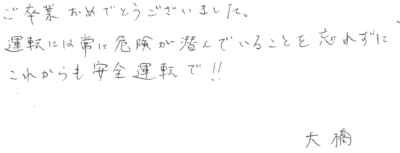 ご卒業おめでとうございました。
運転には常に危険が潜んでいることを忘れずに
これからも安全運転で!!
大橋